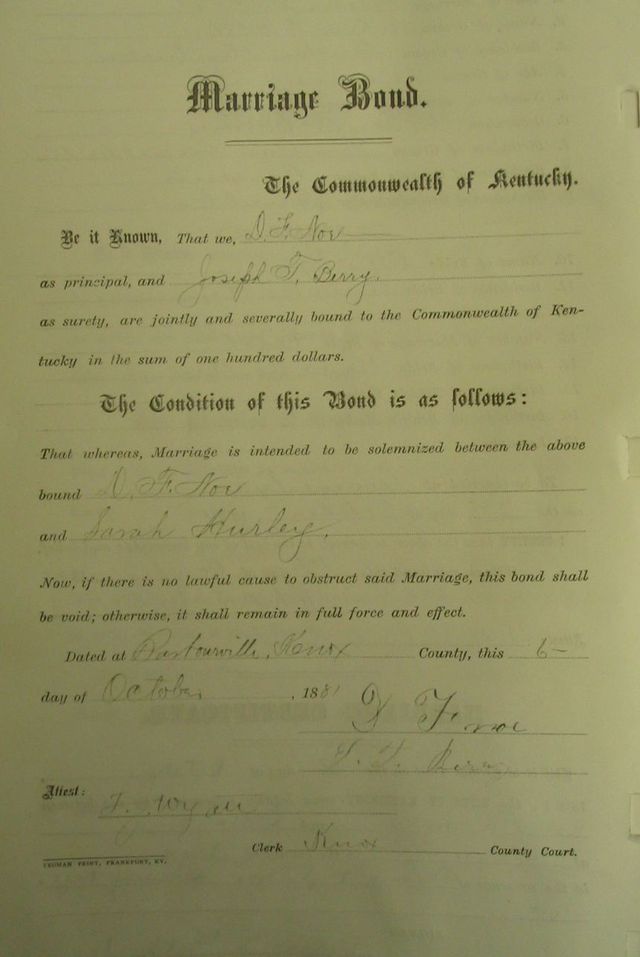 Marriage Bond.
The Commonwealth of Kentucky.
Be it Known, That we, D. F. Noe
as principal, and Joseph T. Berry.
as surety, are jointly and severally bound to the Commonwealth of Ken-
tucky in the sum of one hundred dollars.
The Condition of this Bond is as follows:
That whereas, Marriage is intended to be solemnized between the above
bound D. F. Noe
and Sarah Hurley.
Now, if there is no lawful cause to obstruct said Marriage, this bond shall
be void; otherwise, it shall remain in full force and effect.
Dated at Barbourville, Knox County, this 6-
day of October, 1881
D F noe
Attest:
Clerk Knox County Court.
YEOMAN PRINT, FRANKFORT, KY.